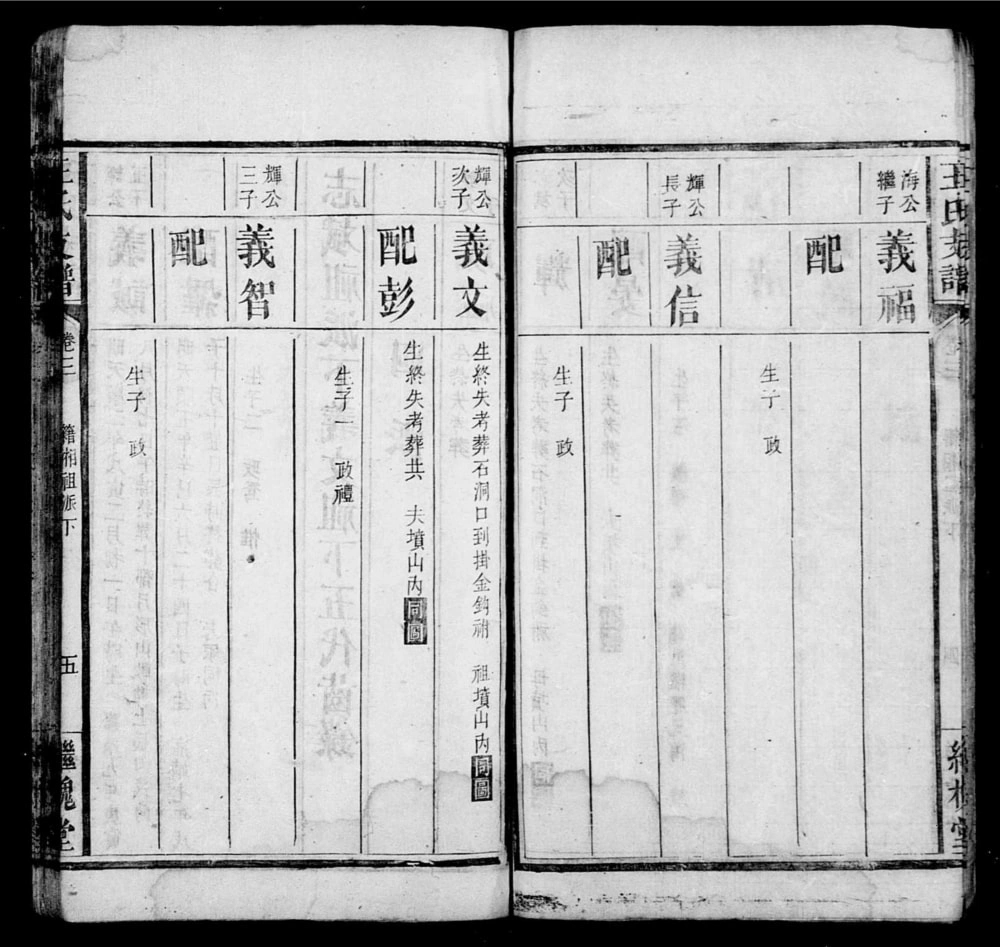 海公
繼子
義福
配
生子 政
輝公
長子
義信
配
生子 政
輝公
次子
義文
生終失考葬石洞口到掛金鈎祔 祖墳山內同圖
配彭
生終失考葬共 夫墳山內同圖
生子一 政禮
輝公
三子
義智
配
生子 政
卷二
籍 祖派下
五
繼槐堂